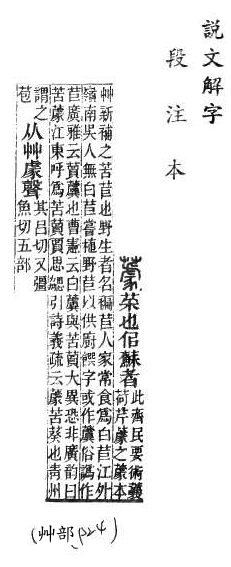 說文解字
段注本
菜也佀蘇者
此齊民要術蘘
荷芹之本
艸新補之苦苣也野生者名褊苣人家常食爲白苣江外
嶺南吳人無白苣嘗植野苣以供廚饌字或作俗譌作
苣廣雅云蕒也曹憲云白與苦蕒大異恐非廣韵曰
苦江東呼爲苦蕒賈思勰引詩義疏云苦葵也青州
謂之
苞
从艸豦聲
其呂切又彊
魚切五部
(艸部、p24)